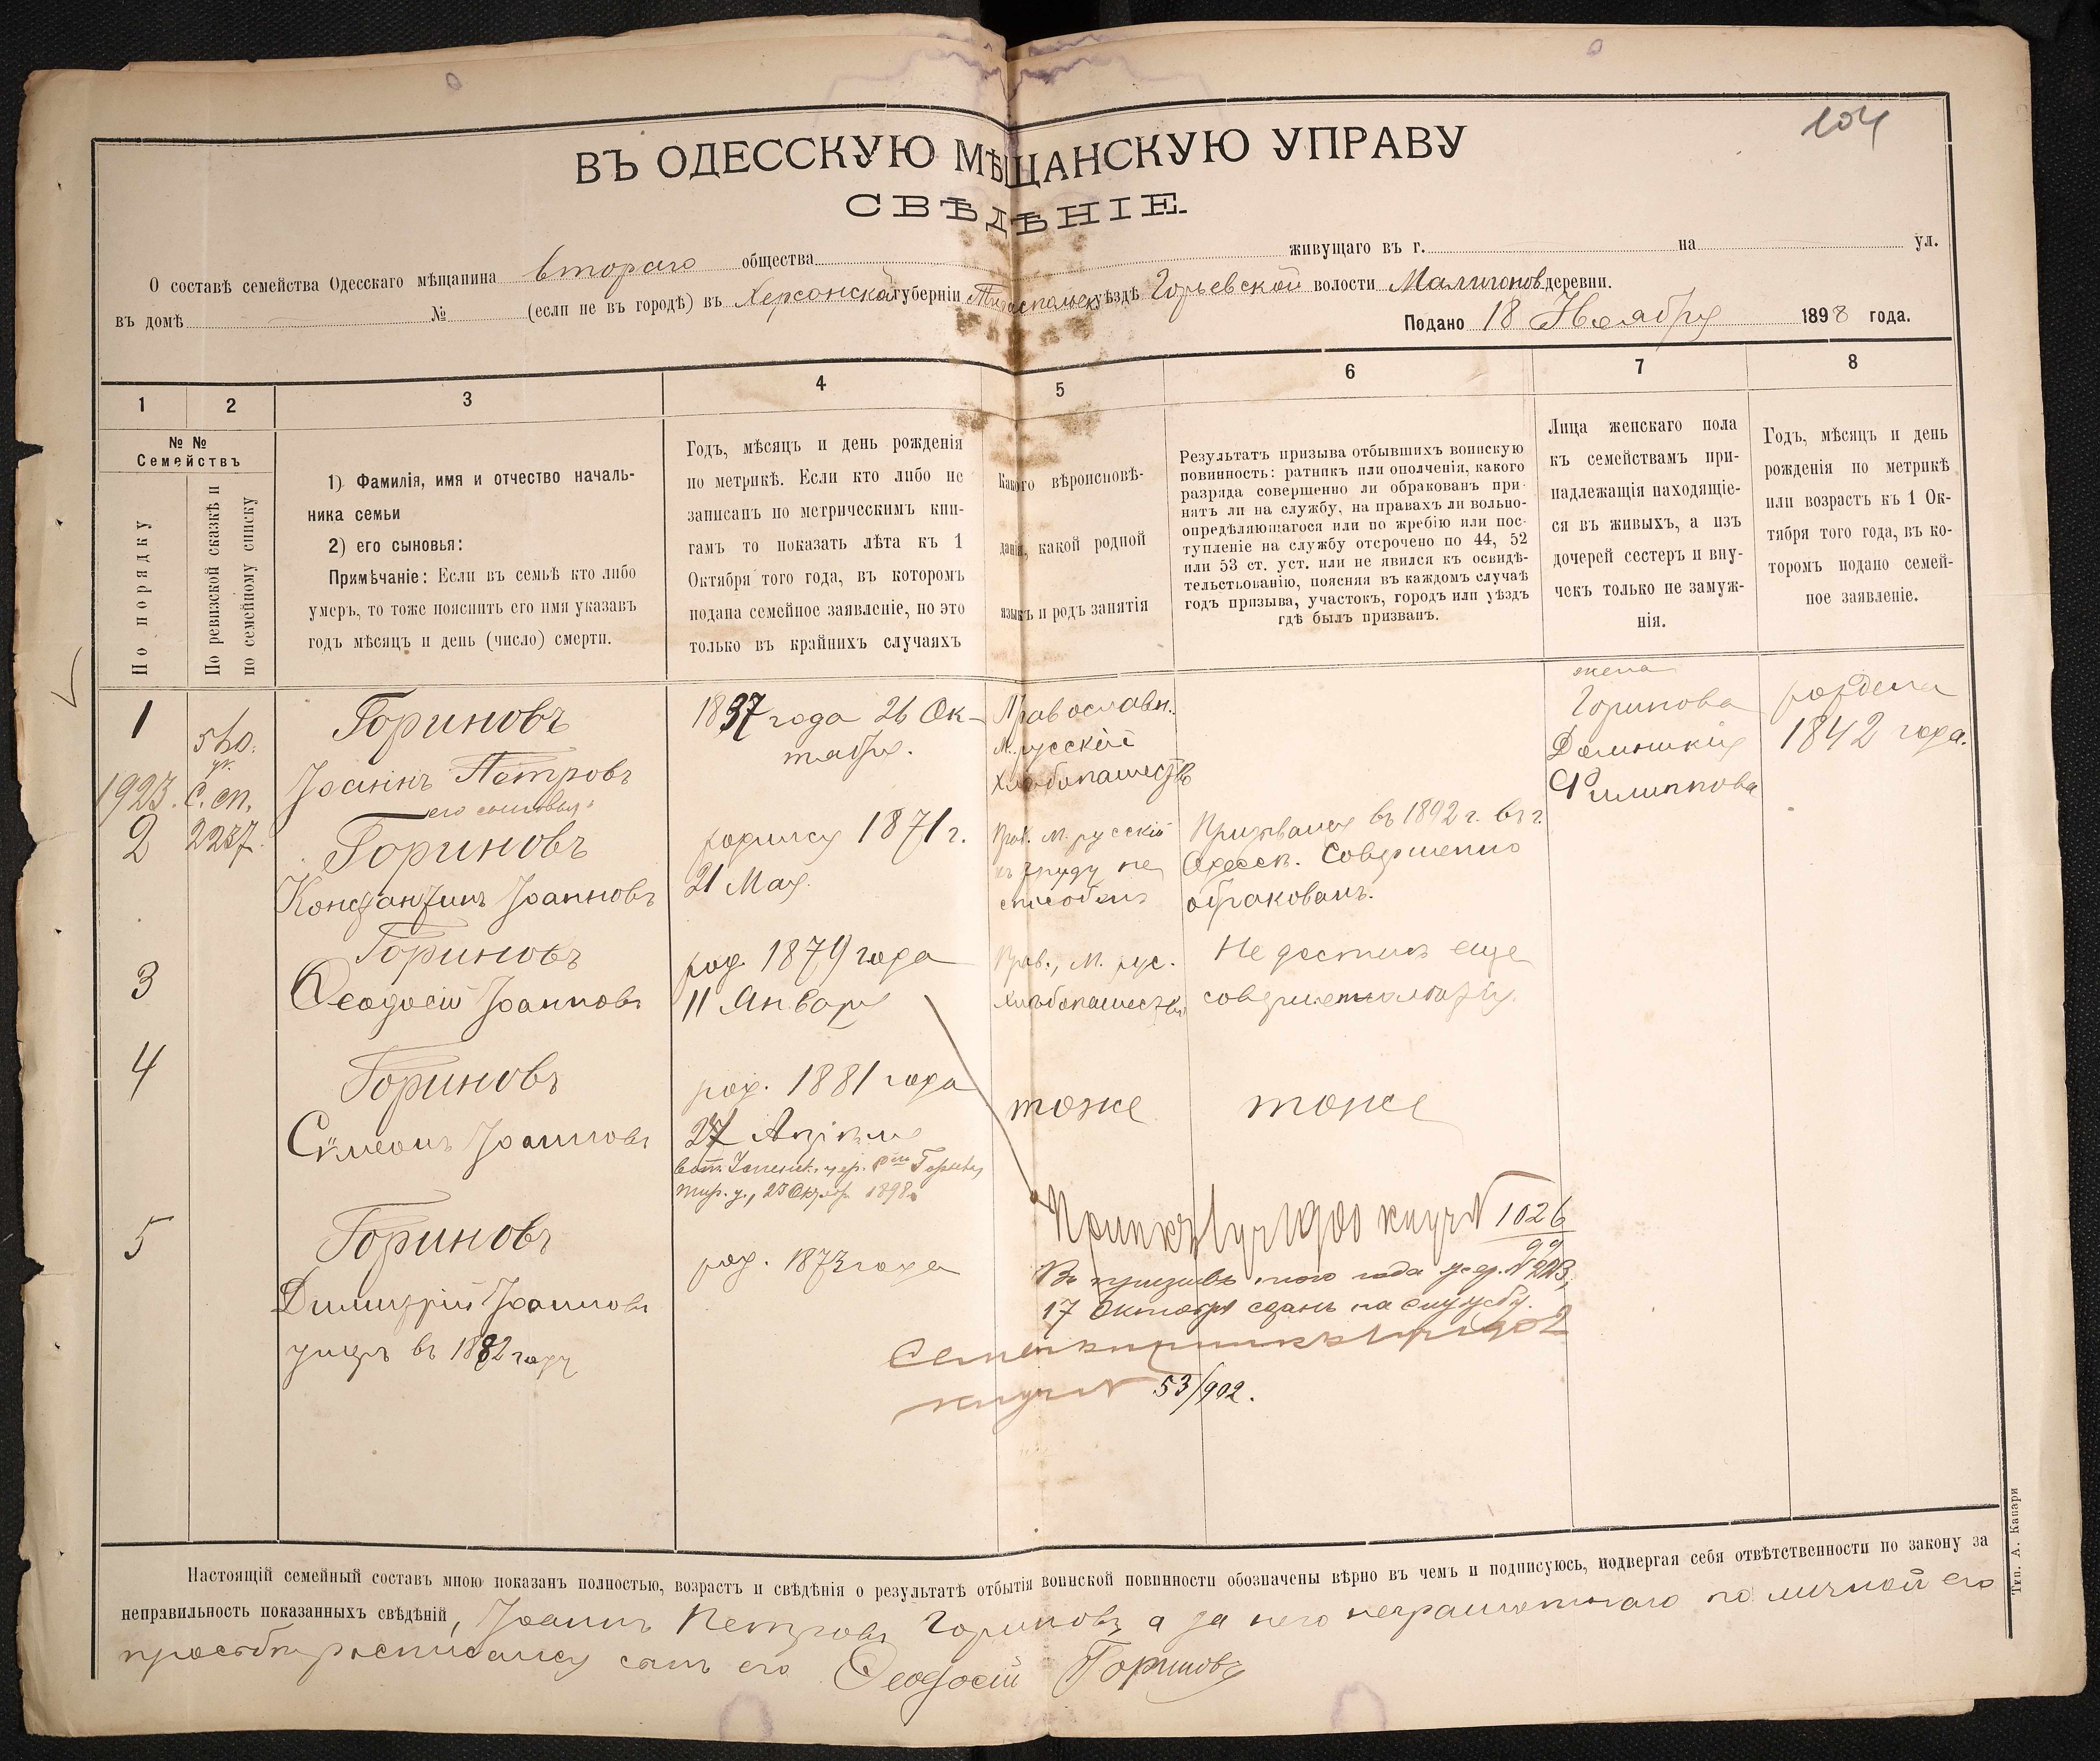 104
ВЪ ОДЕССКУЮ МѢЩАНСКУЮ УПРАВУ
СВѢДѢНІЕ.
О составѣ семейства Одесскаго мѣщанина втораго общества живущаго въ г. на ул.
въ домѣ № (если не въ городѣ) въ Херсонской губерніи Тираспольск уѣздѣ Горьевской волости Малигонов деревни.
Подано 18 Ноября 1898 года.
1 2 3 4 5 6 7 8
№ №
Семействъ
По порядку
По ревизской сказкѣ и
по семейному списку
1) Фамилія, имя и отчество началь-
ника семьи
2) его сыновья:
Примѣчаніе: Если въ семьѣ кто либо
умеръ, то тоже пояснить его имя указавъ
годъ мѣсяцъ и день (число) смерти.
Годъ, мѣсяцъ и день рожденія
по метрикѣ. Если кто либо не
записанъ по метрическимъ кни-
гамъ то показать лѣта къ 1
Октября того года, въ которомъ
подана семейное заявленіе, но это
только въ крайнихъ случаяхъ
Какого вѣроисповѣ-
данія, какой родной
языкъ и родъ занятія
Результатъ призыва отбывшихъ воинскую
повинность: ратникъ или ополченія, какого
разряда совершенно ли обракованъ при-
нятъ ли на службу, на правахъ ли вольно-
опредѣляющагося или по жребію или пос-
тупленіе на службу отсрочено по 44, 52
или 53 ст. уст. или не явился къ освидѣ-
тельствованію, поясняя въ каждомъ случаѣ
годъ призыва, участокъ, городъ или уѣздъ
гдѣ былъ призванъ.
Лица женскаго пола
къ семействамъ при-
надлежащія находящіе-
ся въ живыхъ, а изъ
дочерей сестеръ и вну-
чекъ только не замуж-
нія.
Годъ, мѣсяцъ и день
рожденія по метрикѣ
или возрастъ къ 1 Ок-
тября того года, въ ко-
торомъ подано семей-
ное заявленіе.
1
1923.
С. сп.
2237.
Горинов
Іоаннъ Петровъ
1837 года 26 Ок-
тября.
Православн.
М. русскій
Хлѣбопашеств
жена
Горинова
Доминикія
Филиппова
рождена
1842 года.
его сыновья:
2
Горинов
Константинъ Іоанновъ
родился 1871 г.
21 Мая.
Прав. М. русскій
къ труду не
способенъ
Призывался въ 1892 г. въ г.
Одесск. Совершенно
обракованъ.
3
Горинов
Феодосій Іоанновъ
род. 1879 года
11 Января
Прав., М. рус.
хлѣбопашеств
Не достигъ еще
совершеннолѣтія.
4
Горинов
Сѵмеонъ Іоанновъ
род. 1881 года
27 Апрѣля
тоже
тоже
5
Горинов
Димитрій Іоанновъ
умеръ въ 1882 году
род. 1873 года
1026
99
17 Октября сданъ на службу.
53/902.
Настоящій семейный составъ мною показанъ полностью, возрастъ и свѣдѣнія о результатѣ отбытія воинской повинности обозначены вѣрно въ чемъ и подписуюсь, подвергая себя отвѣтственности по закону за
неправильность показанныхъ свѣдѣній, Іоаннъ Петровъ Горинов, а за него неграмотнаго по личной его
просьбѣ росписался сынъ его Феодосій Горинов
Тип. А. Капари